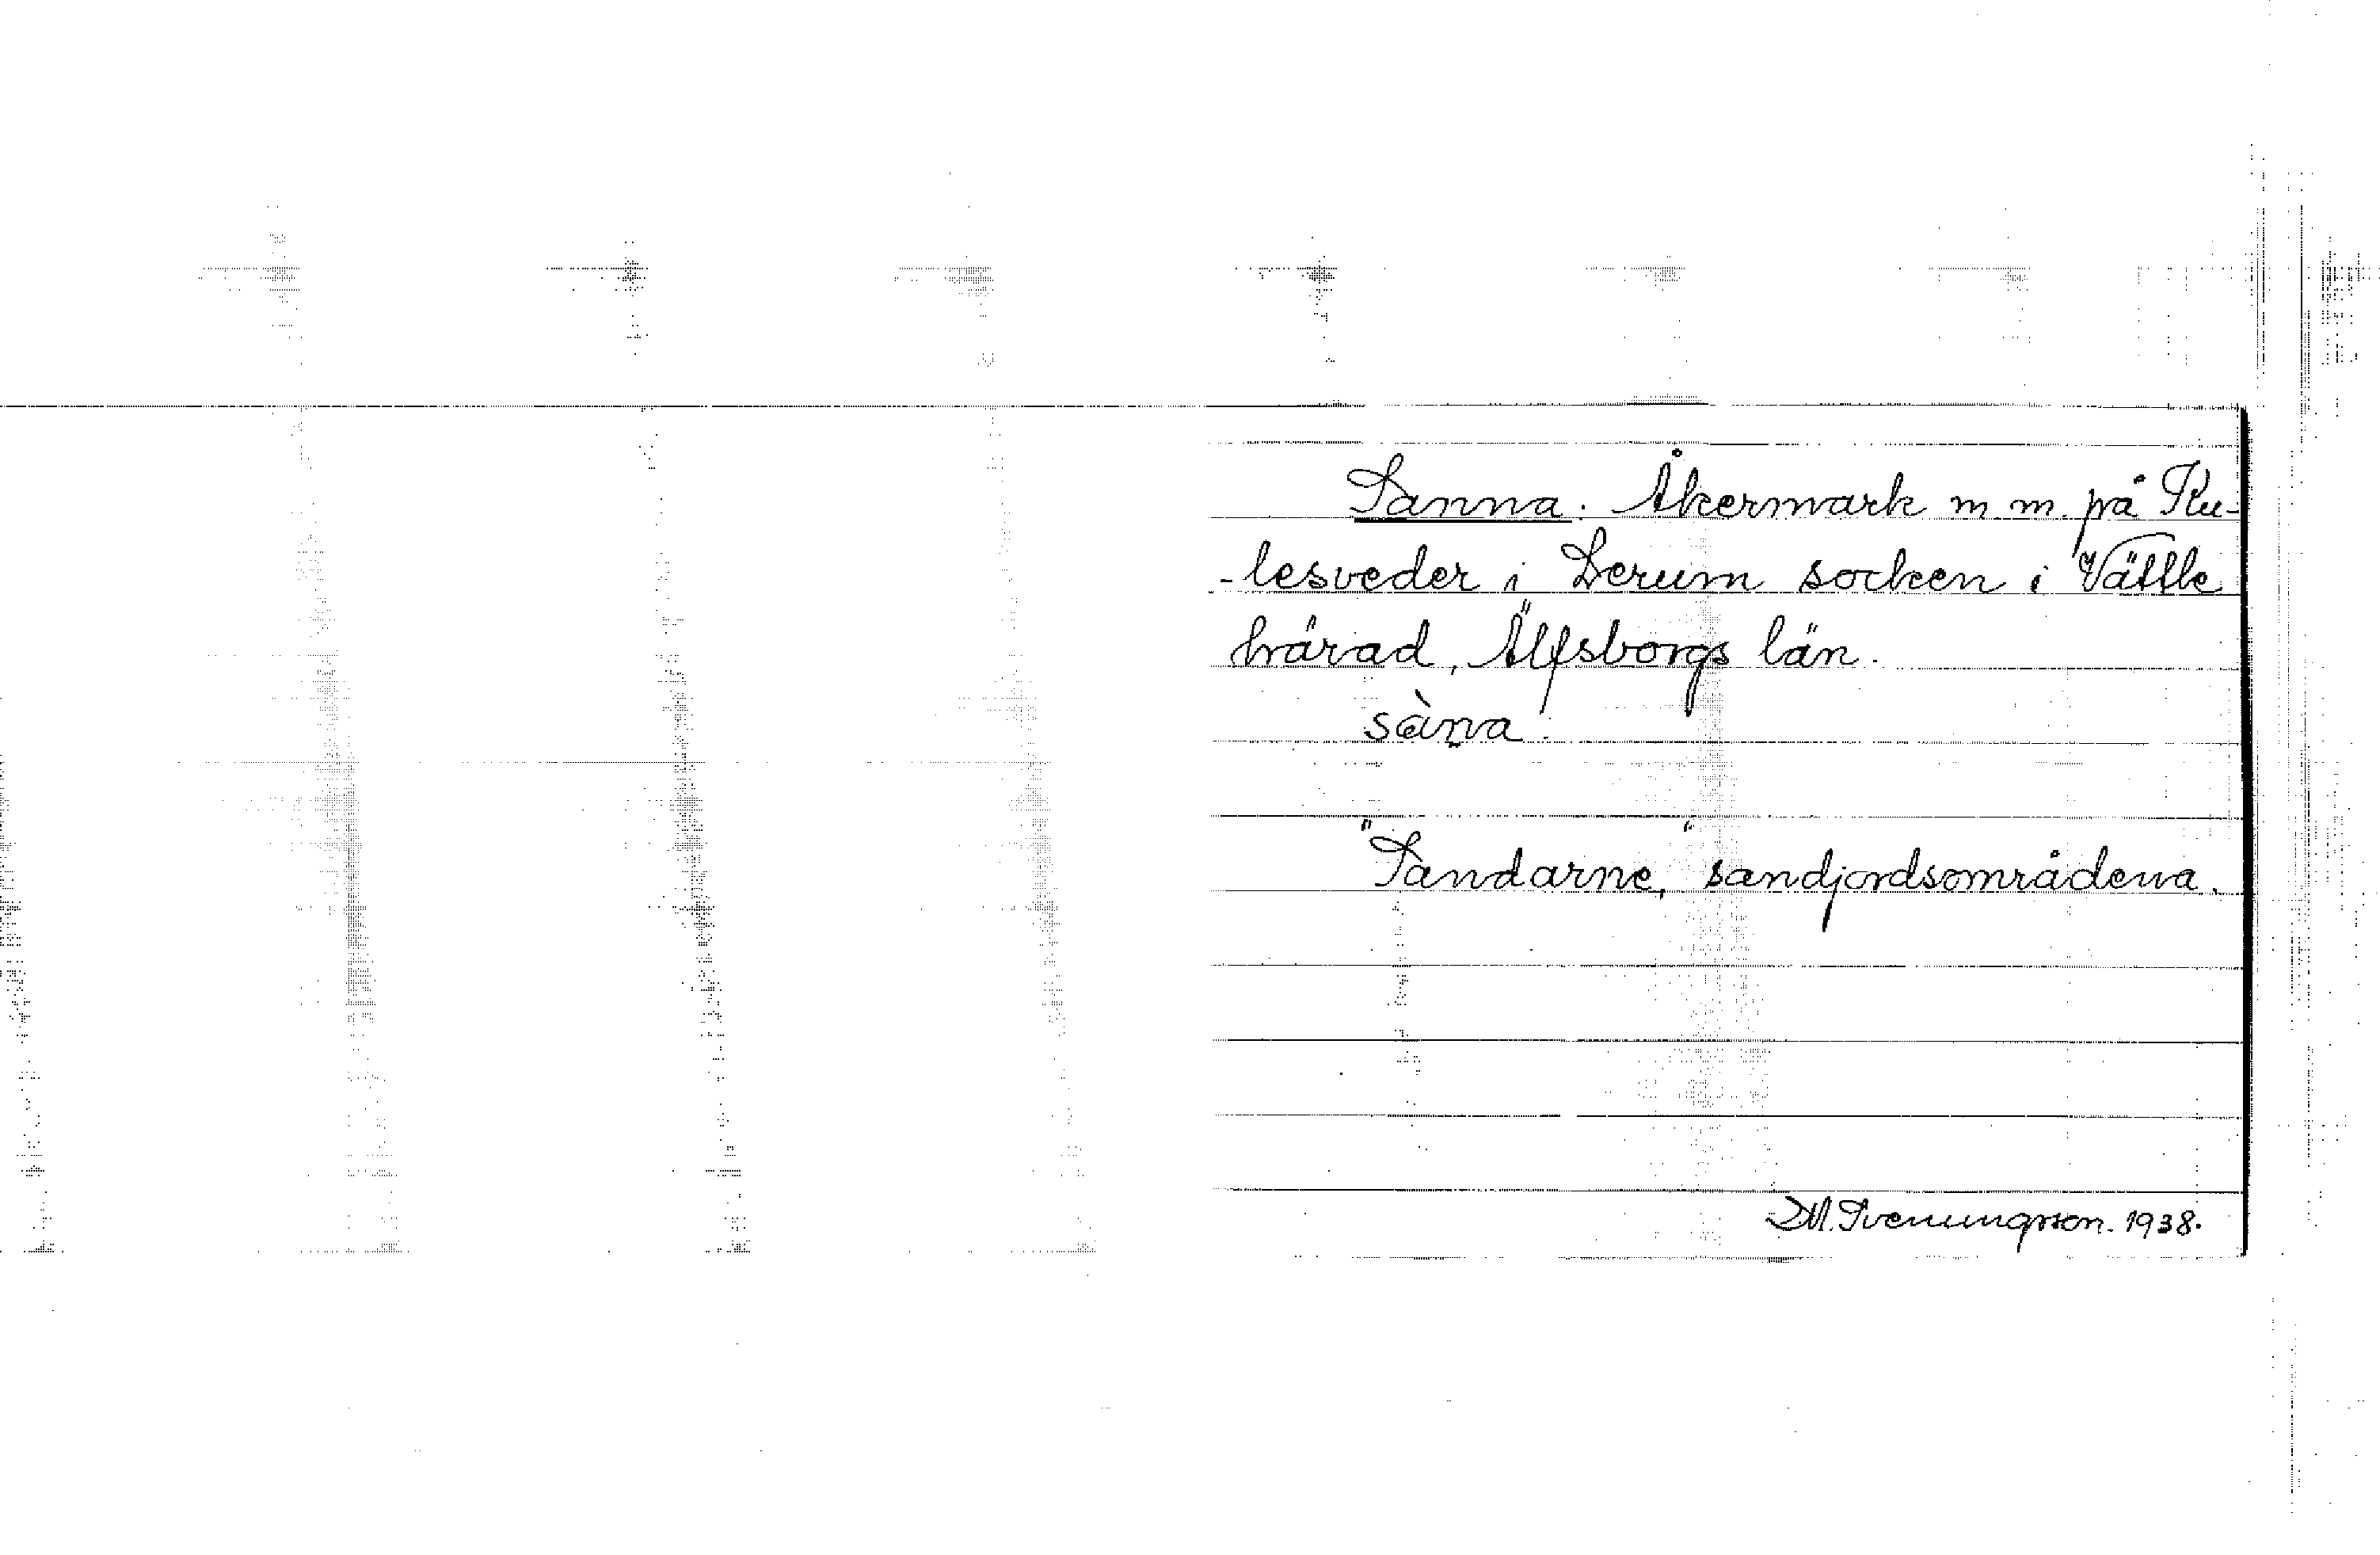 Sanna. Åkermark m m. på Ku-
-lesveder i Lerum socken i Vättle
härad, Älfsborgs län.
sàn̥a.
"Sandarne," sandjordsområdena.
D M. Svenungsson. 1938.